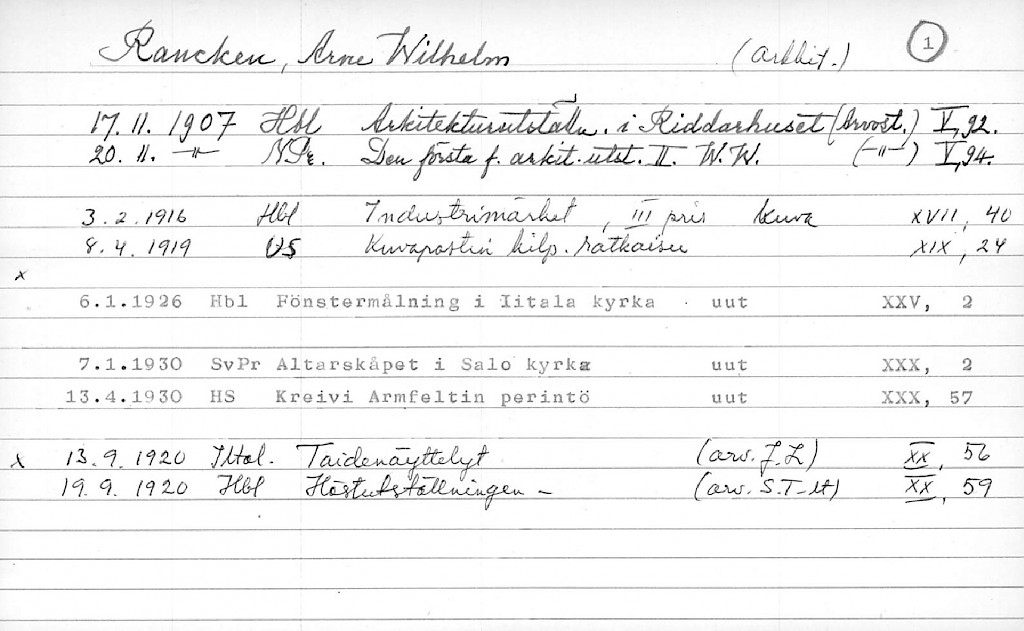 Rancken, Arne Wilhelm (arkkit.) 1
17.11.1907 Hbl Arkitekturutställn. i Riddarhuset (Arvost.) V,92.
20.11. -"- N.Pr. Den första f. arkit. utst. II. W.W. (-"-) V,94.
3.2.1916 Hbl Industrimärket, III pris kuva XVII, 40
8.4.1919 US Kuvapostin kilp. ratkaisu XIX, 24
x
6.1.1926 Hbl Fönstermålning i Iitala kyrka uut XXV, 2
7.1.1930 SvPr Altarskåpet i Salo kyrka uut XXX, 2
13.4.1930 HS Kreivi Armfeltin perintö uut XXX, 57
x 13.9.1920 Iltal. Taidenäyttelyt (arv. J.L) XX, 56
19.9.1920 Hbl Höstutställningen - (arv. S.T-lt) XX, 59